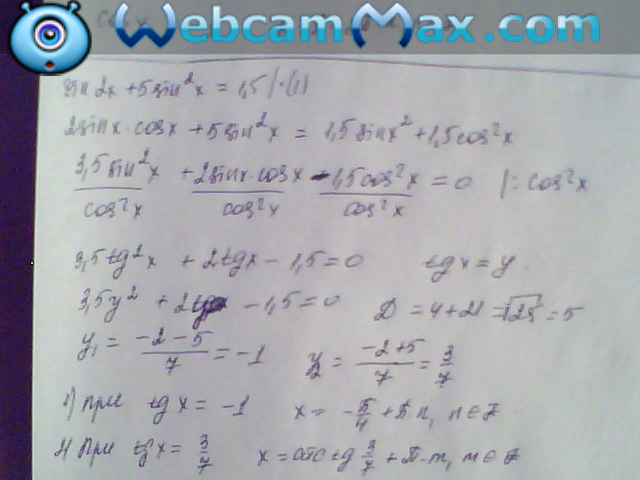 WebcamMax.com
sin 2x + 5 sin²x = 1,5 | · (1)
2 sinx · cosx + 5 sin²x = 1,5 sinx² + 1,5 cos²x
3,5 sin²x / cos²x + 2 sinx · cosx / cos²x - 1,5 cos²x / cos²x = 0 |: cos²x
3,5 tg²x + 2 tgx - 1,5 = 0 tg x = y
3,5y² + 2 - 1,5 = 0 D = 4 + 21 = √25 = 5
y₁ = (-2 - 5) / 7 = -1 y₂ = (-2 + 5) / 7 = 3/7
1) при tg x = -1 x = -π/4 + π·n, n ∈ Z
2) при tg x = 3/7 x = arc tg 3/7 + π·m, m ∈ Z